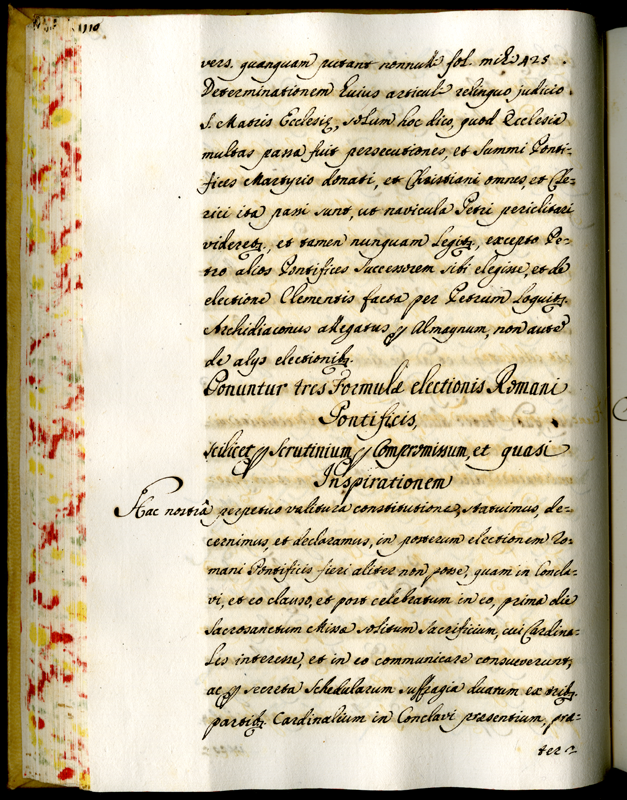 vers. quanquam putant nonnulli fol. mihi 425.
Determinationem huius articuli relinquo judicio
S. Matris Ecclesiæ, solum hoc dico, quod Ecclesia
multas passa fuit persecutiones, et Summi Ponti-
fices Martyrio donati, et Christiani omnes, et Cle-
rici ita passi sunt, ut navicula Petri periclitari
videretꝫ, et tamen nunquam legitꝫ, excepto Pe-
tro alios Pontifices successorem sibi elegisse, et de
electione Clementis facta per Petrum loquitꝫ
Archidiaconus allegatus ꝑ Almaynum, non autē
de alijs electionibꝫ.
Ponuntur tres Formulæ electionis Romani
Pontificis,
scilicet ꝑ Scrutinium ꝑ Compromissum, et quasi
Inspirationem
Hac nostrâ perpetuo valitura constitutione, statuimus, de-
cernimus, et declaramus, in posterum electionem Ro-
mani Pontificis fieri aliter non posse, quam in Concla-
vi, et eo clauso, et post celebratum in eo, prima die
Sacrosanctum Missæ solitum Sacrificium, cui Cardina-
les interesse, et in eo communicare consueverunt,
ac ꝑ secreta schedularum suffragia duarum ex tribꝫ
partibꝫ Cardinalium in Conclavi præsentium, præ-
ter